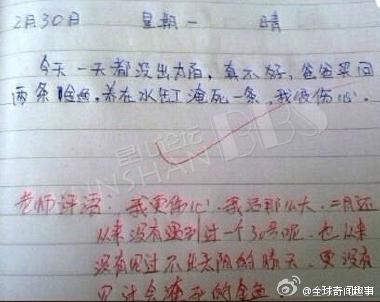 2月30日 星期一 晴
今天一天都没出太阳,真不好,爸爸买回
两条金鱼,养在水缸淹死一条,我很伤心。
昆山论坛
KUNSHAN BBS
老师评语:我更伤心,我活那么大,二月还
从来没有遇到过一个30号呢,也从来
没有见过不出太阳的晴天,更没有
见过会淹死的金鱼
@全球奇闻趣事